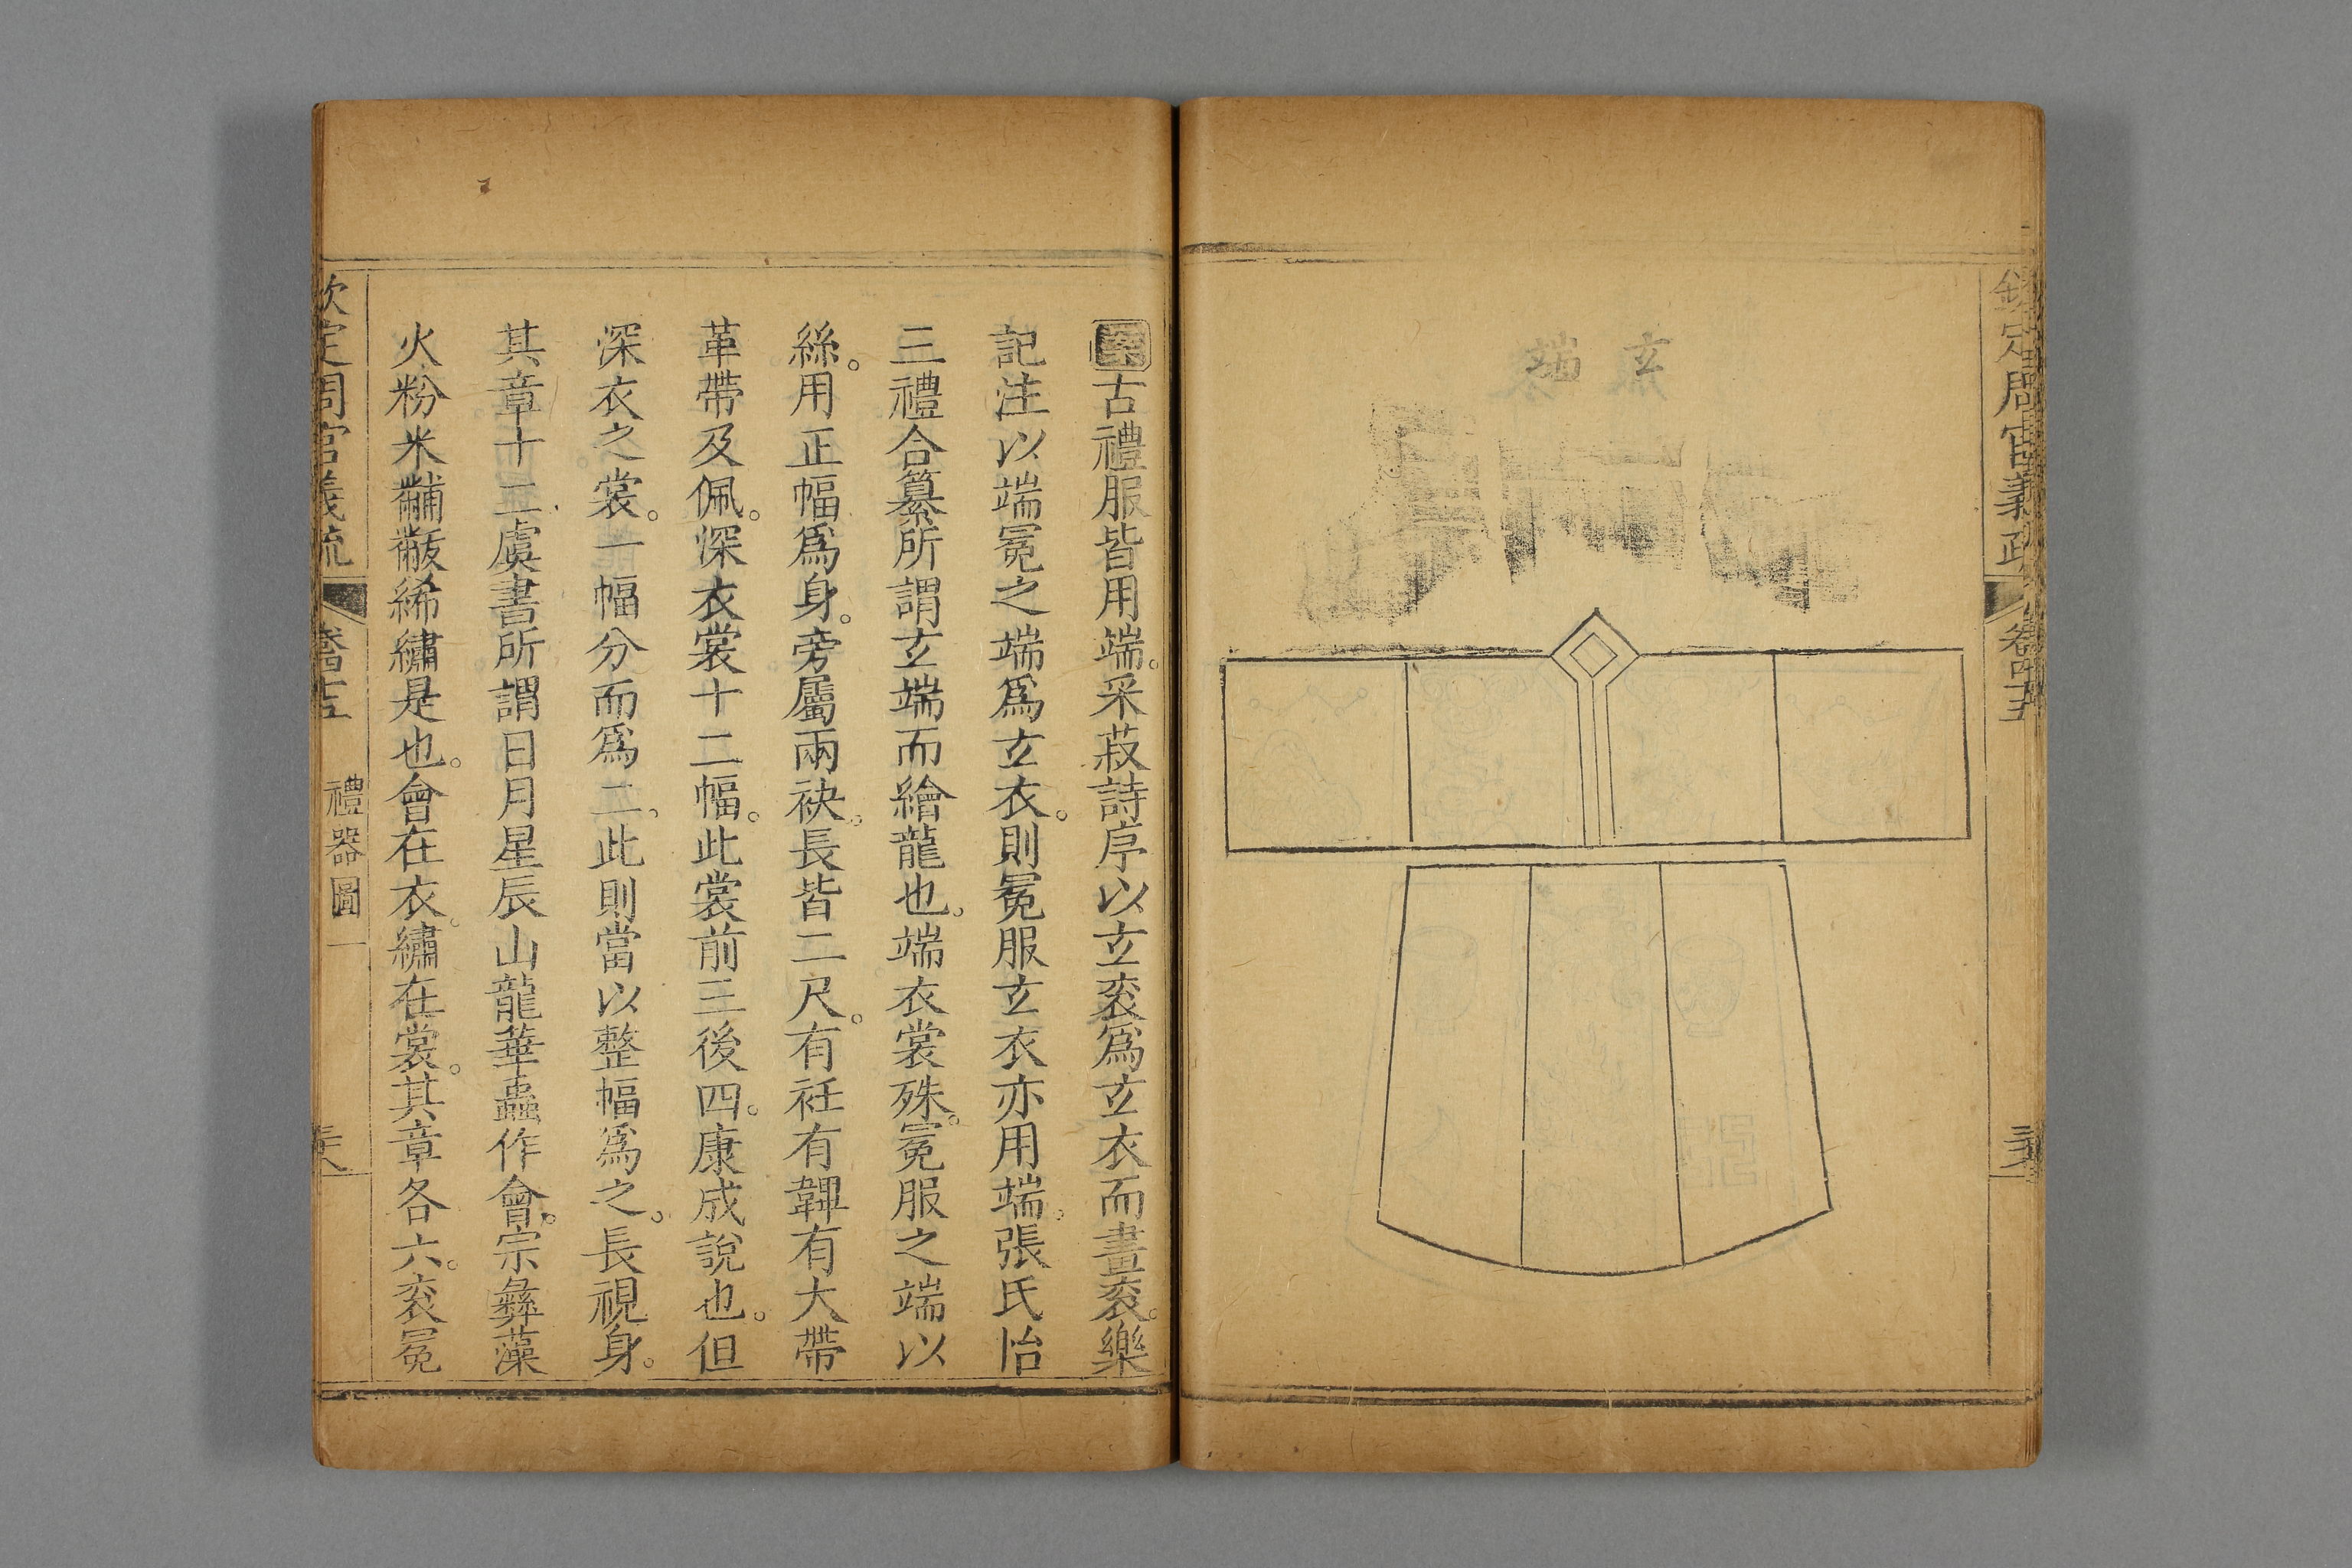 欽定周官義疏 卷四十五
玄端
案古禮服皆用端。采菽詩序以玄衮爲玄衣而畫衮。樂
記注以端冕之端爲玄衣。則冕服玄衣亦用端。張氏怡
三禮合纂所謂玄端而繪龍也。端衣裳殊。冕服之端以
絲。用正幅爲身。旁屬兩袂。長皆二尺。有衽有韠有大帶
革帶及佩。深衣裳十二幅。此裳前三後四。康成說也。但
深衣之裳。一幅分而爲二。此則當以整幅爲之。長視身。
其章十二虞書所謂日月星辰山龍華蟲作會。宗彝藻
火粉米黼黻絺繡是也。會在衣。繡在裳。其章各六。衮冕
欽定周官義疏 禮器圖一